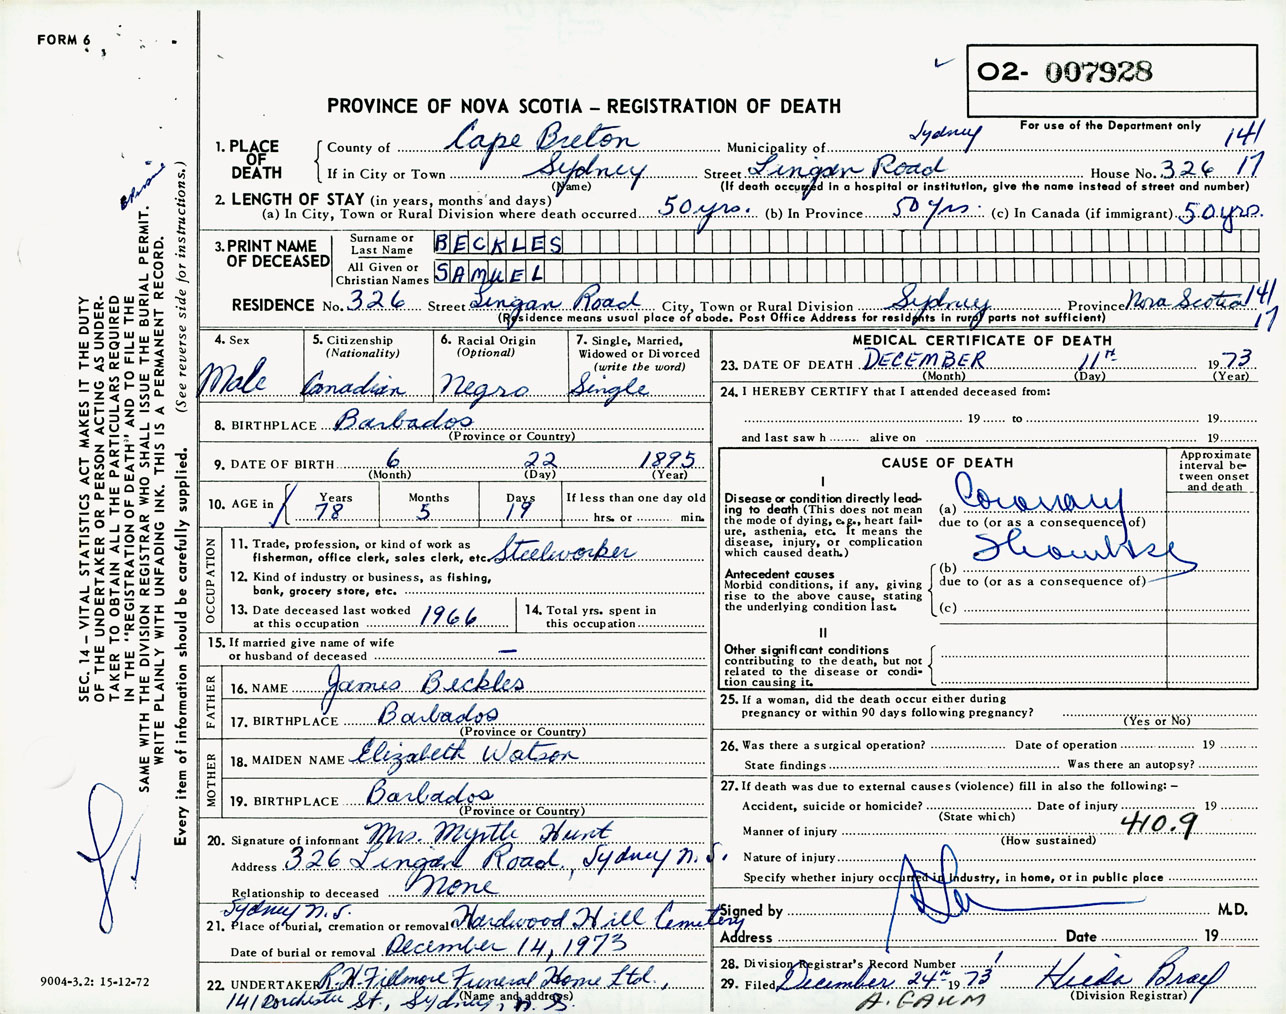 FORM 6
O2- 007928
PROVINCE OF NOVA SCOTIA – REGISTRATION OF DEATH
For use of the Department only
1. PLACE OF DEATH
County of Cape Breton Municipality of Sydney 141
If in City or Town Sydney Street Lingan Road House No. 326 17
(Name) (If death occurred in a hospital or institution, give the name instead of street and number)
2. LENGTH OF STAY (in years, months and days)
(a) In City, Town or Rural Division where death occurred 50 yrs. (b) In Province 50 yrs. (c) In Canada (if immigrant) 50 yrs.
3. PRINT NAME OF DECEASED
Surname or Last Name BECKLES
All Given or Christian Names SAMUEL
RESIDENCE No. 326 Street Lingan Road City, Town or Rural Division Sydney Province Nova Scotia 141
(Residence means usual place of abode. Post Office Address for residents in rural parts not sufficient) 17
4. Sex
Male
5. Citizenship
(Nationality)
Canadian
6. Racial Origin
(Optional)
Negro
7. Single, Married,
Widowed or Divorced
(write the word)
Single
8. BIRTHPLACE Barbados
(Province or Country)
9. DATE OF BIRTH 6 22 1895
(Month) (Day) (Year)
10. AGE in Years Months Days If less than one day old
78 5 19 hrs. or min.
OCCUPATION
11. Trade, profession, or kind of work as
fisherman, office clerk, sales clerk, etc. Steelworker
12. Kind of industry or business, as fishing,
bank, grocery store, etc.
13. Date deceased last worked
at this occupation 1966
14. Total yrs. spent in
this occupation
15. If married give name of wife
or husband of deceased –
FATHER
16. NAME James Beckles
17. BIRTHPLACE Barbados
(Province or Country)
MOTHER
18. MAIDEN NAME Elizabeth Watson
19. BIRTHPLACE Barbados
(Province or Country)
20. Signature of informant Mrs. Myrtle Hunt
Address 326 Lingan Road, Sydney N.S.
Relationship to deceased None
Sydney N.S.
21. Place of burial, cremation or removal Hardwood Hill Cemetery
Date of burial or removal December 14, 1973
22. UNDERTAKER R.H. Fillmore Funeral Home Ltd.,
(Name and address)
141 Dorchester St., Sydney, N.S.
MEDICAL CERTIFICATE OF DEATH
23. DATE OF DEATH DECEMBER 11TH 1973
(Month) (Day) (Year)
24. I HEREBY CERTIFY that I attended deceased from:
19 to 19
and last saw h alive on 19
CAUSE OF DEATH
Approximate
interval be-
tween onset
and death
I
Disease or condition directly lead-
ing to death (This does not mean
the mode of dying, e.g., heart fail-
ure, asthenia, etc. It means the
disease, injury, or complication
which caused death.)
(a) Coronary
due to (or as a consequence of)
Antecedent causes
Morbid conditions, if any, giving
rise to the above cause, stating
the underlying condition last.
(b)
due to (or as a consequence of)
(c)
II
Other significant conditions
contributing to the death, but not
related to the disease or condi-
tion causing it.
25. If a woman, did the death occur either during
pregnancy or within 90 days following pregnancy?
(Yes or No)
26. Was there a surgical operation? Date of operation 19
State findings Was there an autopsy?
27. If death was due to external causes (violence) fill in also the following: –
Accident, suicide or homicide? Date of injury 19
(State which)
Manner of injury 410.9
(How sustained)
Nature of injury
Specify whether injury occurred in Industry, in home, or in public place
Signed by M.D.
Address Date 19
28. Division Registrar's Record Number 1
29. Filed December 24th 1973
(Division Registrar)
SEC. 14 – VITAL STATISTICS ACT MAKES IT THE DUTY
OF THE UNDERTAKER OR PERSON ACTING AS UNDER-
TAKER TO OBTAIN ALL THE PARTICULARS REQUIRED
IN THE "REGISTRATION OF DEATH" AND TO FILE THE
SAME WITH THE DIVISION REGISTRAR WHO SHALL ISSUE THE BURIAL PERMIT.
WRITE PLAINLY WITH UNFADING INK. THIS IS A PERMANENT RECORD.
Every item of information should be carefully supplied. (See reverse side for instructions.)
9004-3.2: 15-12-72